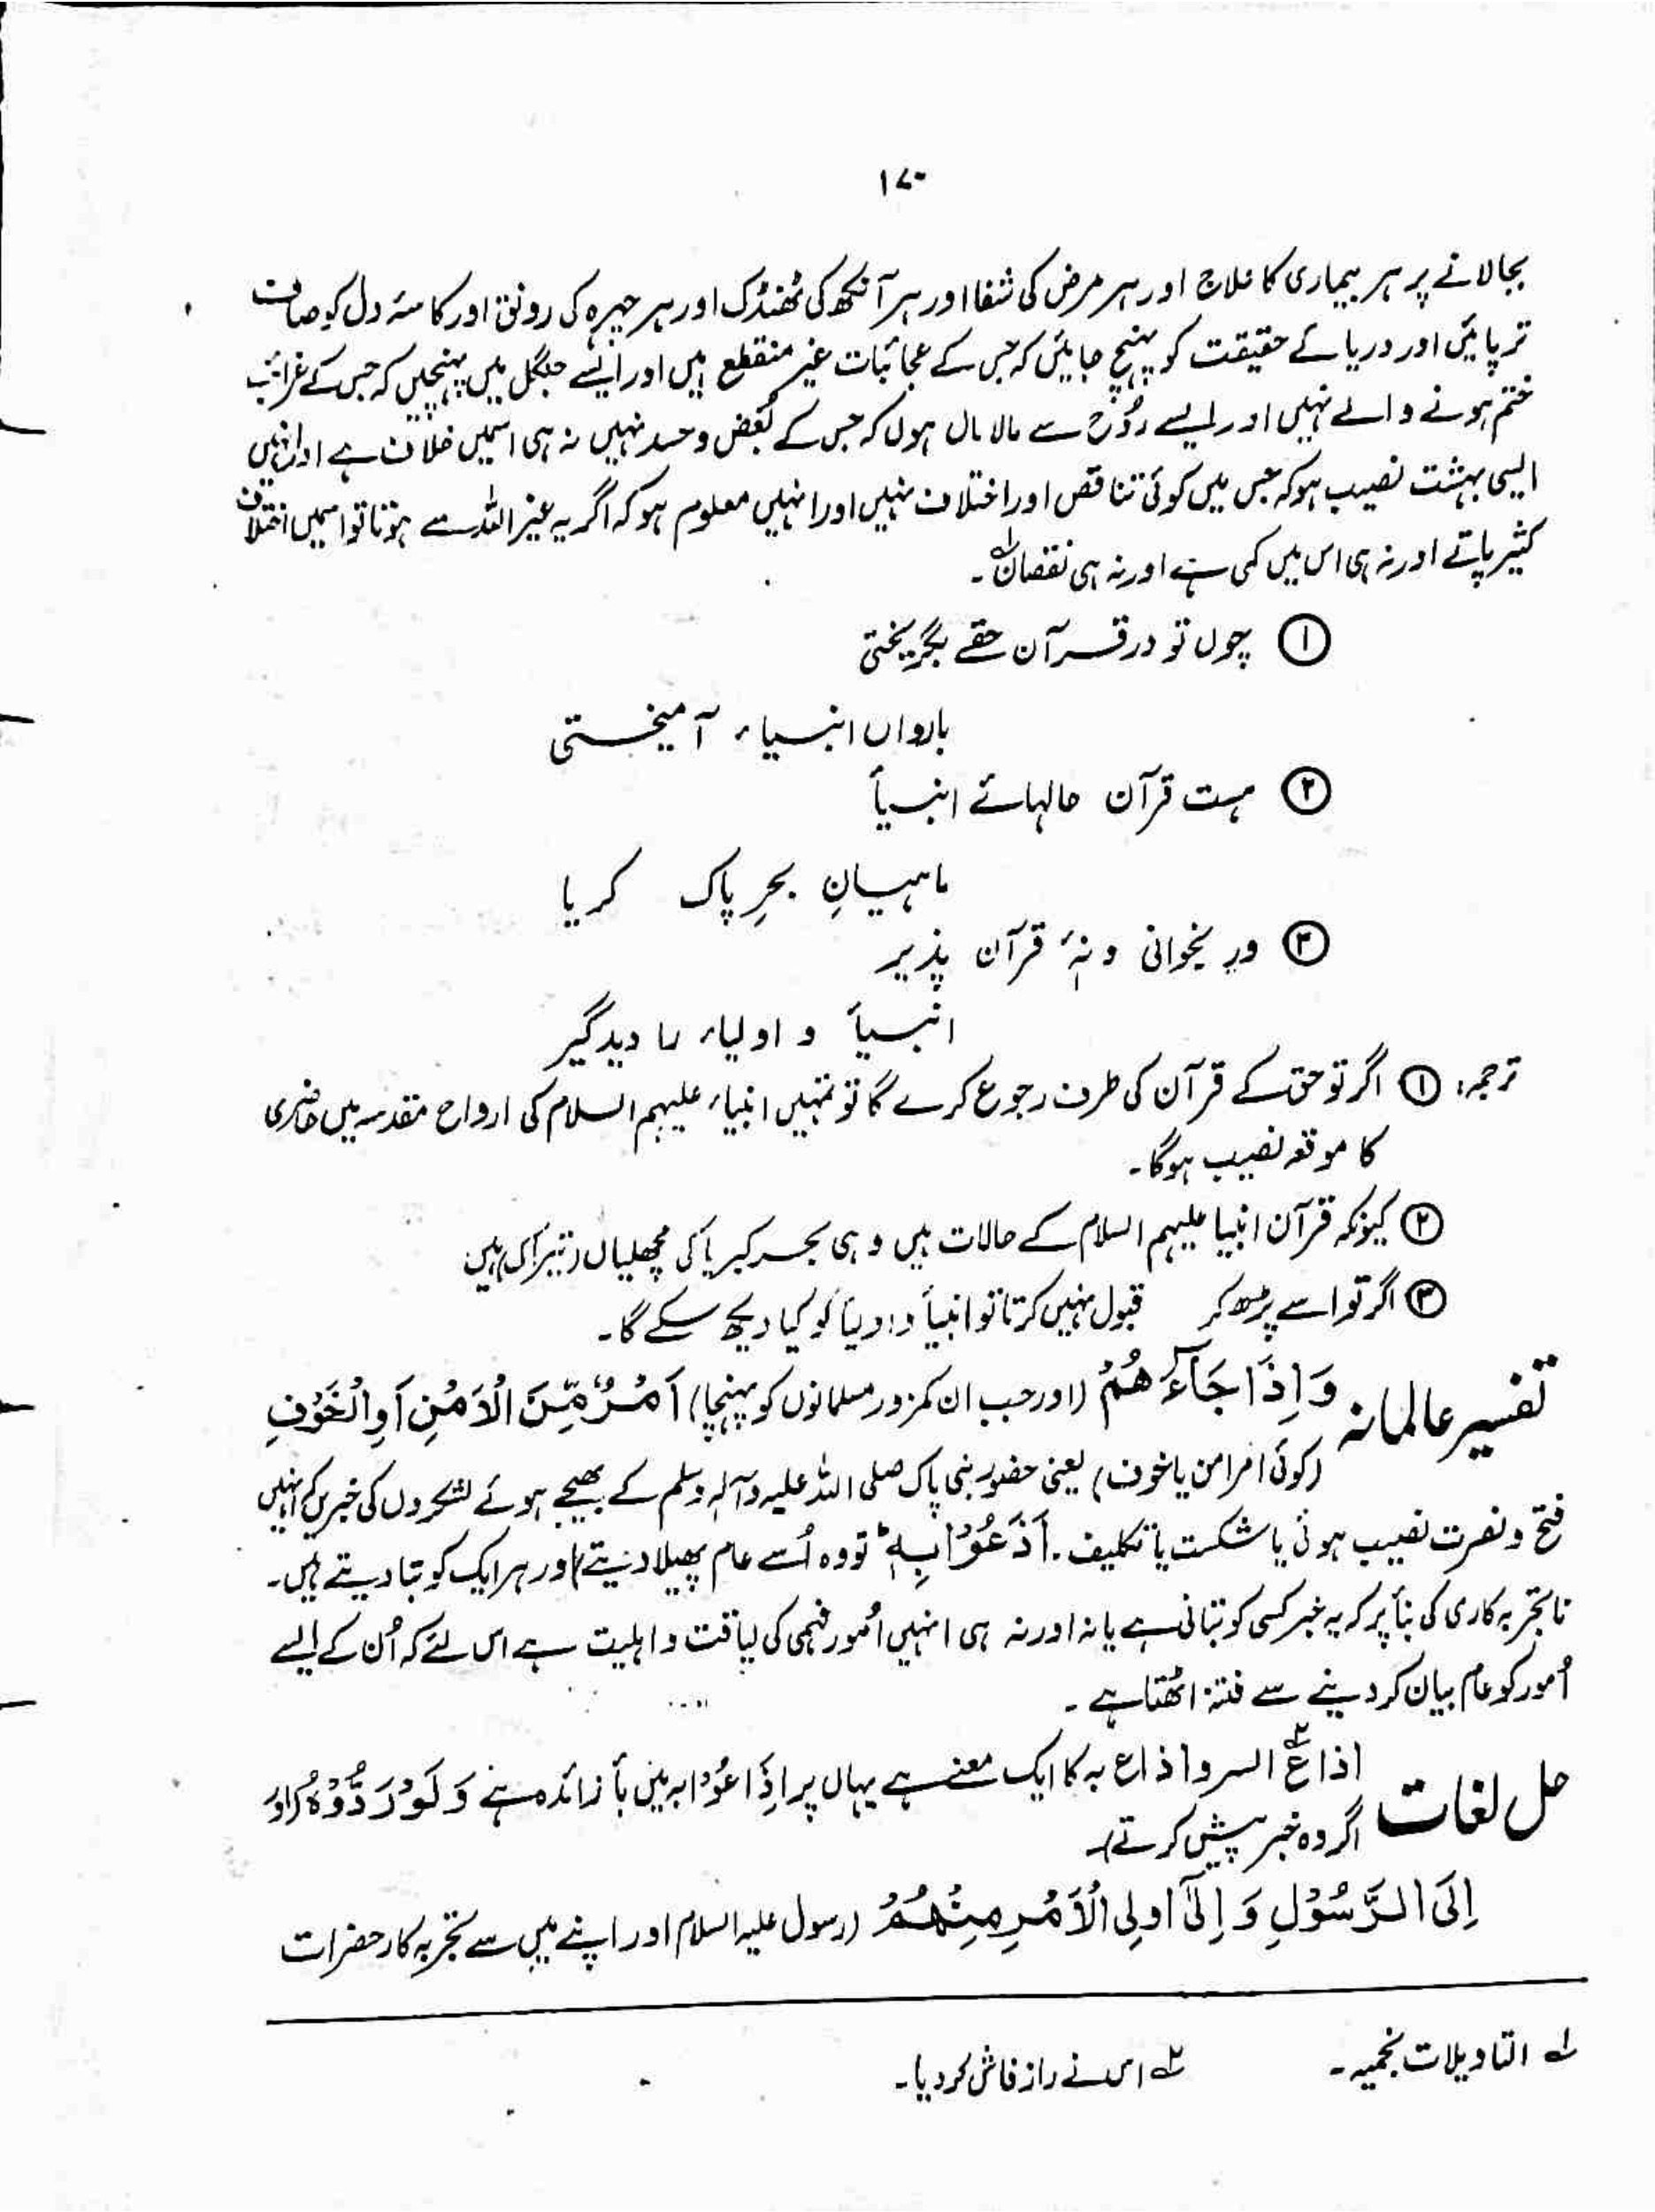 ۱۷۰
بجالانے پر ہر بیماری کا علاج اور ہر مرض کی شفا اور ہر آنکھ کی ٹھنڈک اور ہر چہرہ کی رونق اور کاسۂ دل کو صاف
تر پائیں اور دریائے حقیقت کو پہنچ جائیں کہ جس کے عجائبات غیر منقطع ہیں اور ایسے جنگل میں پہنچیں کہ جس کے غرائب
ختم ہونے والے نہیں اور ایسے رُوح سے مالا مال ہوں کہ جس کے بُغض و حسد نہیں نہ ہی اسمیں خلاف ہے اور انہیں
ایسی بہشت نصیب ہو کہ جس میں کوئی تناقص اور اختلاف نہیں اور انہیں معلوم ہو کہ اگر یہ غیر اللہ سے ہوتا تو اسمیں اختلاف
کثیر پاتے اور نہ ہی اس میں کمی ہے اور نہ ہی نقصان لہ۔
① چوں تو در قرآن حقے بگریختی
بارواں انبیاء آمیختی
② ہست قرآن حالہائے انبیأ
ماہیانِ بحرِ پاک کریا
③ ور بخوانی ونۂ قرآن پذیر
انبیأ و اولیاء را دید گیر
ترجمہ: ① اگر تو حق کے قرآن کی طرف رجوع کرے گا تو تمہیں انبیاء علیہم السلام کی ارواح مقدسہ میں حاضری
کا موقعہ نصیب ہوگا۔
② کیونکہ قرآن انبیا علیہم السلام کے حالات ہیں وہی بحر کبریا کی مچھلیاں ہیں
③ اگر تو اسے پڑھ کر قبول نہیں کرتا تو انبیأ و اولیأ کو کیا دیکھ سکے گا۔
تفسیر عالمانہ وَاِذَا جَآءَ ھُمْ (اور جب ان کمزور مسلمانوں کو پہنچا) اَمْرٌ مِّنَ الْاَمْنِ اَوِ الْخَوْفِ
(کوئی امر امن یا خوف) یعنی حضور نبی پاک صلی اللہ علیہ وآلہ وسلم کے بھیجے ہوئے لشکروں کی خبریں کہ انہیں
فتح و نصرت نصیب ہوئی یا شکست یا تکلیف۔ اَذَعُوْا بِہٖ ؕ تو وہ اُسے عام پھیلا دیتے) اور ہر ایک کو بتا دیتے ہیں۔
ناتجربہ کاری کی بنأ پر کہ یہ خبر کسی کو بتانی ہے یا نہ اور نہ ہی انہیں اُمور فہمی کی لیاقت و اہلیت ہے اس لئے کہ اُن کے ایسے
اُمور کو عام بیان کر دینے سے فتنہ اٹھتا ہے۔
حل لغات اذاع ۲ السر و اذاع بہ کا ایک معنے ہے یہاں پر اذَاعُوْا بہ میں بأ زائدہ ہے وَ لَوْ رَدُّوْہُ (اور
اگر وہ خبر پیش کرتے)۔
اِلَی الرَّسُوْلِ وَ اِلٰٓی اولِی الْاَمْرِ مِنْھُمْ (رسول علیہ السلام اور اپنے میں سے تجربہ کار حضرات
لہ التاویلات نجمیہ۔ ۲ہ اس نے راز فاش کر دیا۔